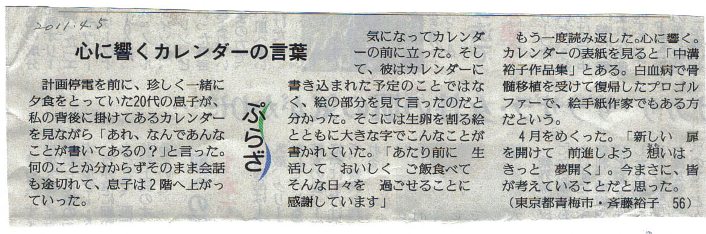 2011.4.5
心に響くカレンダーの言葉
計画停電を前に、珍しく一緒に
夕食をとっていた20代の息子が、
私の背後に掛けてあるカレンダー
を見ながら「あれ、なんであんな
ことが書いてあるの？」と言った。
何のことか分からずそのまま会話
も途切れて、息子は２階へ上がっ
ていった。
ぷらざ
気になってカレンダ
ーの前に立った。そし
て、彼はカレンダーに
書き込まれた予定のことではな
く、絵の部分を見て言ったのだと
分かった。そこには生卵を割る絵
とともに大きな字でこんなことが
書かれていた。「あたり前に　生
活して　おいしく　ご飯食べて
そんな日々を　過ごせることに
感謝しています」
もう一度読み返した。心に響く。
カレンダーの表紙を見ると「中溝
裕子作品集」とある。白血病で骨
髄移植を受けて復帰したプロゴル
ファーで、絵手紙作家でもある方
だという。
４月をめくった。「新しい　扉
を開けて　前進しよう　想いは
きっと　夢開く」。今まさに、皆
が考えていることだと思った。
（東京都青梅市・斉藤裕子　56）